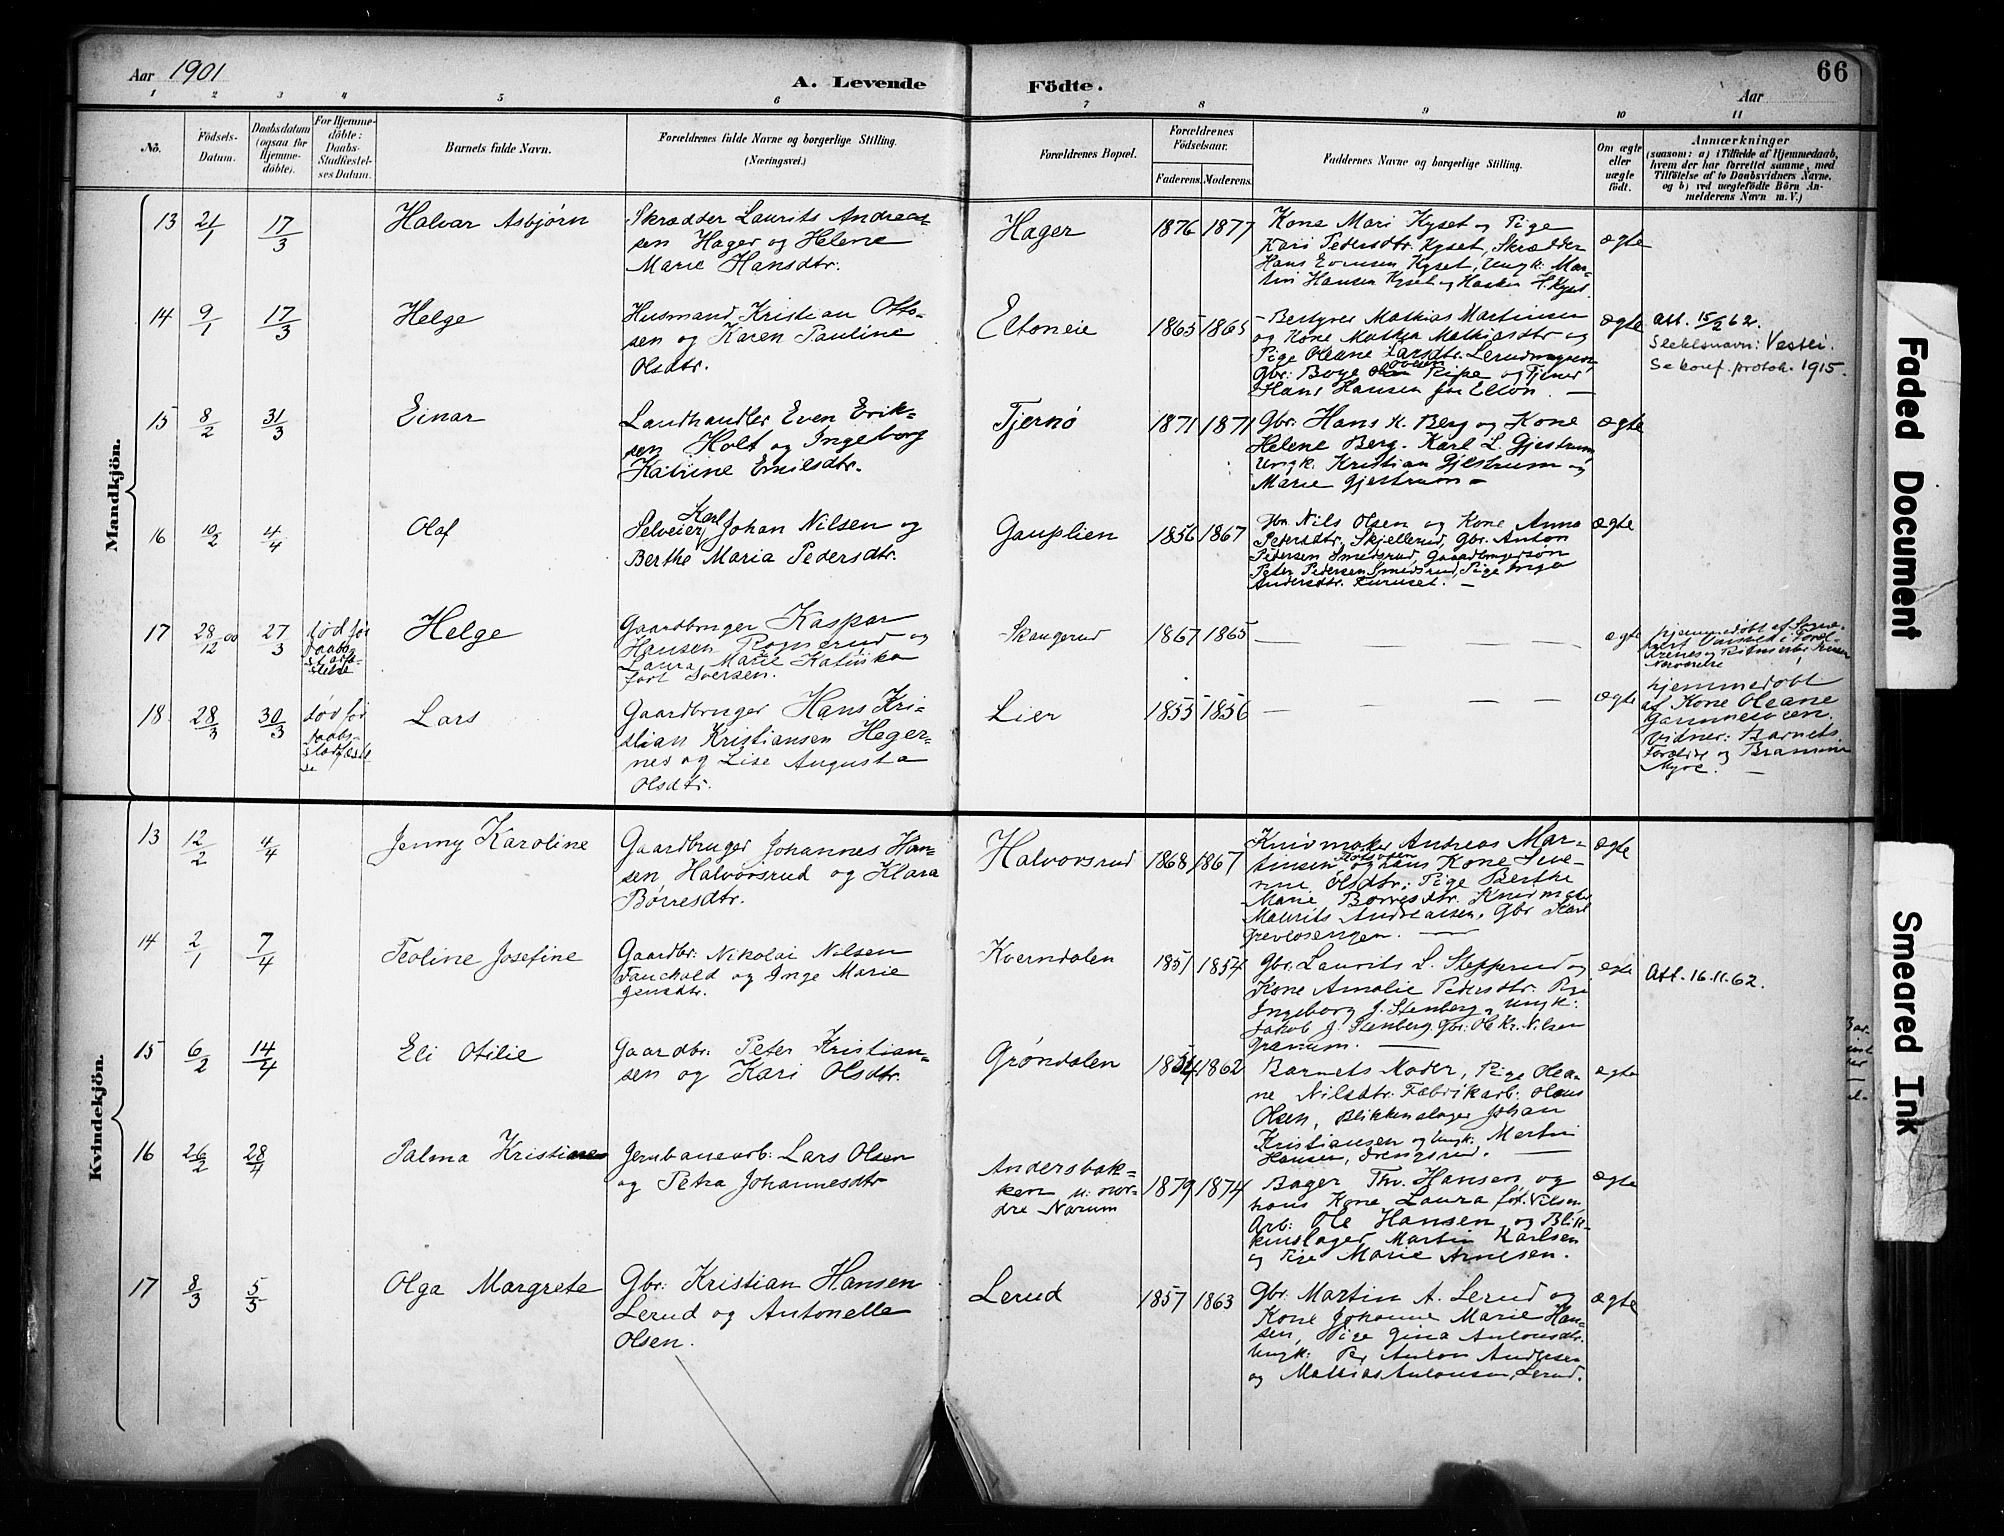 Aar 1901
A. Levende Födte.
66
Aar
1 2 3 4 5 6 7 8 9 10 11
No.
Födsels-
Datum.
Daabsdatum
(ogsaa for
Hjemme-
döbte).
For Hjemme-
döbte:
Daabs-
Stadfæstel-
ses Datum.
Barnets fulde Navn.
Forældrenes fulde Navne og borgerlige Stilling.
(Næringsvei.)
Forældrenes Bopæl.
Forældrenes
Födselsaar.
Faderens.
Moderens.
Faddernes Navne og borgerlige Stilling.
Om ægte
eller
uægte
födt.
Anmærkninger
(saasom: a) i Tilfælde af Hjemmedaab,
hvem der har forrettet samme, med
Tilföielse af to Daabsvidners Navne,
og b) ved uægtefödte Börn An-
melderens Navn m. V.)
Mandkjön.
13 21/1 17/3 Halvar Asbjørn
Skrædder Laurits Andreas-
sen Hager og Helene
Marie Hansdtr.
Hager 1876 1877
Kone Mari Kyset og Pige
Kari Pedersdtr. Kyset, Skrædder
Hans Evensen Kyset, Ungk: Mar-
tin Hansen Kyset og H. Kyset
ægte
14 9/1 17/3 Helge
Husmand Kristian Otto-
sen og Karen Pauline
Olsdtr.
Eltoneie 1865 1865
Bestyrer Mathias Martinsen
og Kone Mathea Mathiasdtr og
Pige Oleane Larsdtr.
Gbr: Boye Pipe og Tjener
Hans Hansen fra Elton. —
ægte
Att. 15/2 62.
Slektsnavn: Vestei.
Se konf. protok. 1915.
15 8/2 31/3 Einar
Landhandler Even Erik-
sen Holt og Ingeborg
Katrine Emilsdtr.
Tjernø 1871 1871
Gbr: Hans K. Berg og Kone
Helene Berg. Karl L. Gjestrum
Ungk. Kristian Gjestrum og
Marie Gjestrum —
ægte
16 10/2 4/4 Olaf
Selveier Karl Johan Nilsen og
Berthe Maria Pedersdtr.
Gauplien 1856 1867
Gbr. Nils Olsen og Kone Anna
Petersdtr. Skjellerud, Gbr. Anton
Pedersen Smedsrud, Gaardbrugersøn
Peter Pedersen Smedsrud, Pige Inga
Andersdtr. Furuset. —
ægte
17 28/12 00 27/3
død før
Daabs-
stadfæ-
stelse
Helge
Gaardbruger Kaspar
Hansen Rognerud og
Laura Marie Katinka
født Iversen.
Skaugerud 1867 1865
— — — —
ægte
hjemmedøbt af Sogne-
18 28/3 30/3
død før
Daabs-
stadfæstel
se
Lars
Gaardbruger Hans Kri-
stian Kristiansen Heger-
nes og Lise Augusta
Olsdtr.
Lier 1855 1856
— — — —
ægte
hjemmedøbt
af Kone Oleane
Vidner: Barnets
Forældre og
Myre. —
Kvindekjön.
13 12/2 4/4 Jenny Karoline
Gaardbruger Johannes Han-
sen Halvorsrud og Klara
Børresdtr.
Halvorsrud 1868 1867
Knivmaker Andreas Mar-
tinsen og hans Kone Seve-
rine Olsdtr; Pige Berthe
Marie Børresdtr. Knivmaker
Maurits Andreassen, Gbr Karl
Grevlosengen. —
ægte
14 2/1 7/4 Teoline Josefine
Gaardbr: Nikolai Nilsen
Fauchald og Inge Marie
Jensdtr.
Kverndalen 1851 1854
Gbr: Laurits L. Stepperud og
Kone Amalie Pedersdtr. Pige
Ingeborg J. Stenberg, Ungk:
Jakob J. Stenberg, Gbr: Ole Kr. Nilsen
Granum. —
ægte
Att. 16.11.62.
15 6/2 14/4 Eli Otilie
Gaardbr: Peter Kristian-
sen og Kari Olsdtr.
Grøndalen 1854 1862
Barnets Moder, Pige Olea-
ne Nilsdtr. Fabrikarb: Olaus
Olsen, Blikkenslager Johan
Kristiansen og Ungk: Martin
Hansen, Drengsrud. —
ægte
16 26/2 28/4 Palma Kristianne
Jernbanearb: Lars Olsen
og Petra Johannesdtr
Andersbak-
ken u. nor-
dre Narum
1879 1874
Bager Thv. Hansen og
hans Kone Laura fød. Nilsen.
Arb: Ole Hansen og Blik-
kenslager Martin Karlsen
og Pige Marie Arnesen.
ægte
17 8/3 5/5 Olga Margrete
Gbr: Kristian Hansen
Lerud og Antonette
Olsen.
Lerud 1857 1863
Gbr: Martin A. Lerud og
Kone Johanne Marie Han-
sen, Pige Gina Antonsdtr.
Ungk: Per Anton Andersen
og Mathias Antonsen, Lerud.
ægte
Faded Document
Smeared Ink